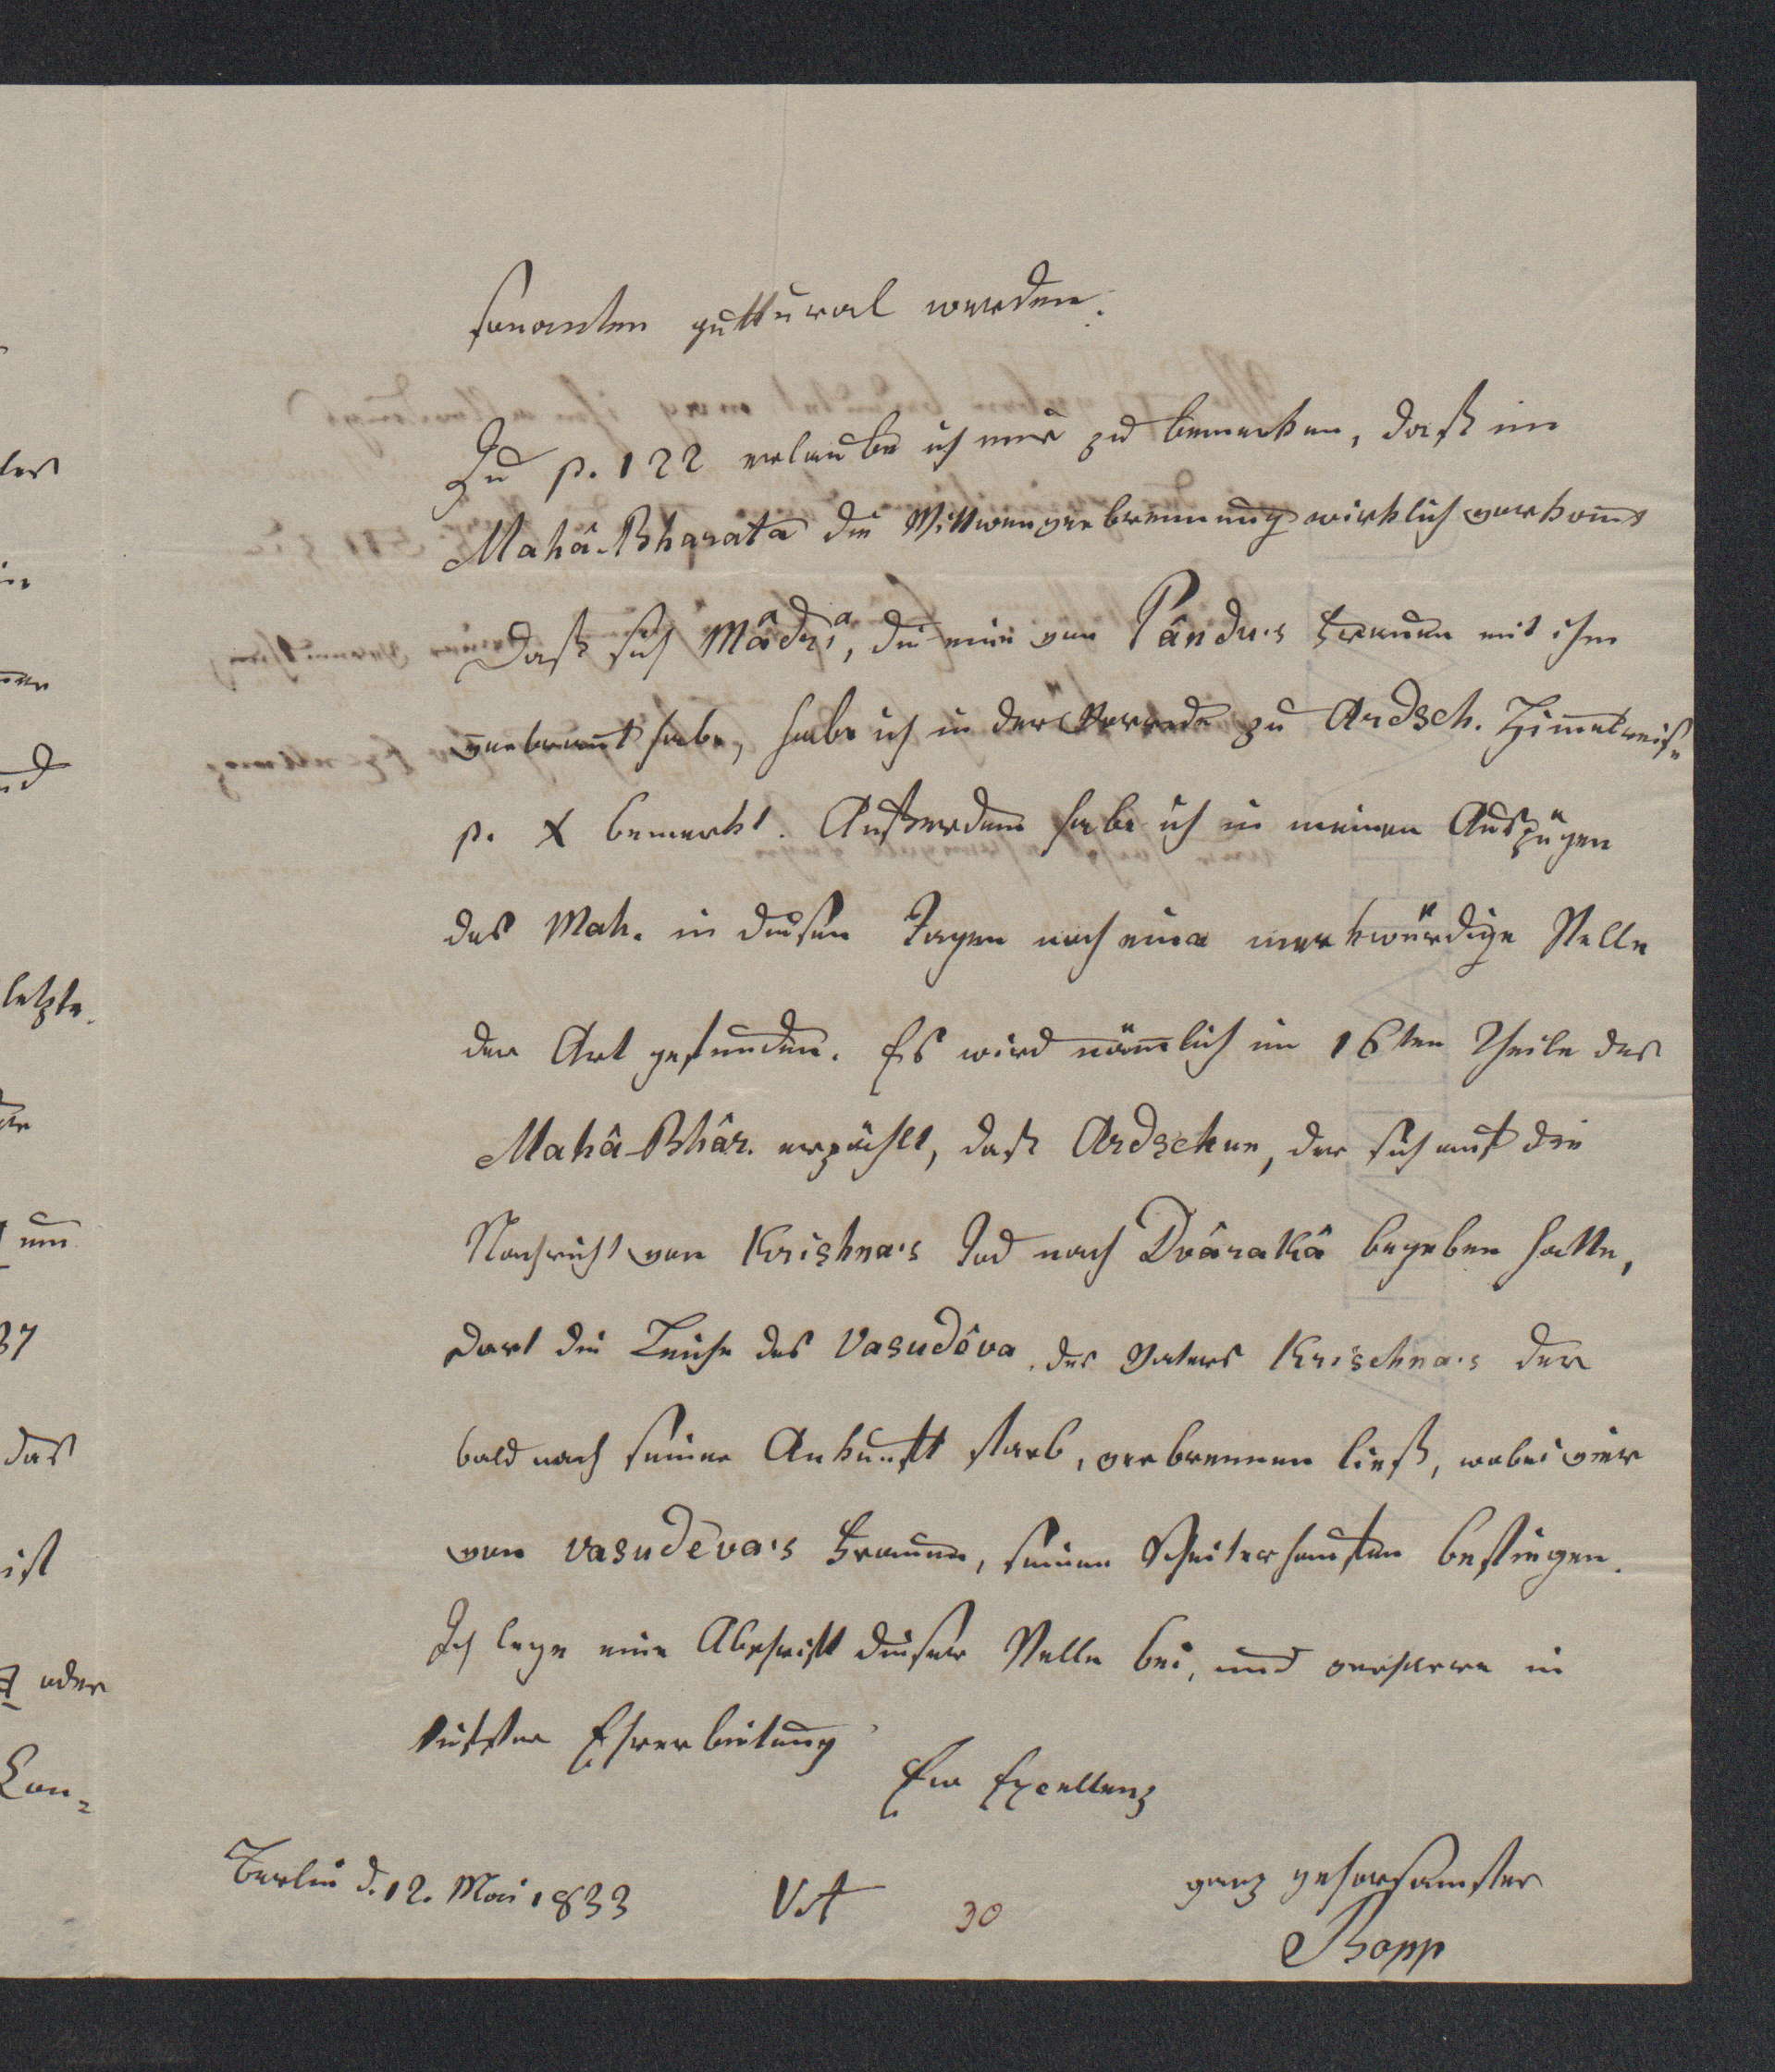 sonanten guttural werden.
Zu p. 122 erlaube ich mir zu bemerken, daß im
Mahâ-Bharata die Wittwenverbrennung wirklich vorkomt
Daß sich Mâdrî, die eine von Pându's Frauen mit ihm
verbrant habe, habe ich in der Vorrede zu Ardsch. Himelreise
p. X bemerkt. Außerdem habe ich in meinen Auszügen
des Mah. in diesen Tagen noch eine merkwürdige Stelle
der Art gefunden. Es wird nämlich im 16ten Theile des
Mahâ-Bhâr. erzählt, daß Ardschun, der sich auf die
Nachricht von Krishna's Tod nach Dvârakâ begeben hatte,
dort die Leiche des Vasudêva, des Vaters Krischna's der
bald nach seiner Ankunft starb, verbrennen ließ, wobei vier
von Vasudêva's Frauen, seinen Scheiterhaufen bestiegen.
Ich lege eine Abschrift dieser Stelle bei, und verharre in
tiefster Ehrerbietung
Ew Excellenz
Berlin d. 12. Mai 1833
30
ganz gehorsamster
Bopp
des
letzte
um
37
das
ist
oder
Con=